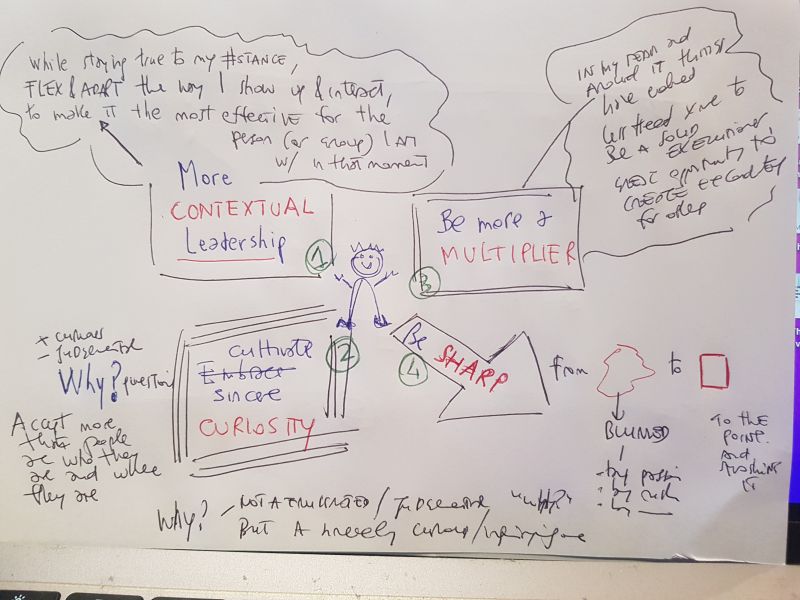 While staying true to my #STANCE,
FLEX & ADAPT the way I show up & interact,
to make it the most effective for the
person (or group) I am
w/ in that moment
More
CONTEXTUAL
Leadership
1
IN MY TEAM and
AROUND IT things
have evolved
Less need me to
BE A SOLID
EXECUTIONER
GREAT opportunity to
CREATE
for others
Be more a
MULTIPLIER
3
+ curious
- judgemental
Why? question
Accept more
that people
are who they
are and where
they are
2
cultivate
Embrace
sincere
CURIOSITY
4
Be SHARP
from
to
BLURRED
- by passion
- by rush
- by
TO THE
POINT
and
WHY?
NOT A FRUSTRATED / judgemental "why"
But A sincerely curious /